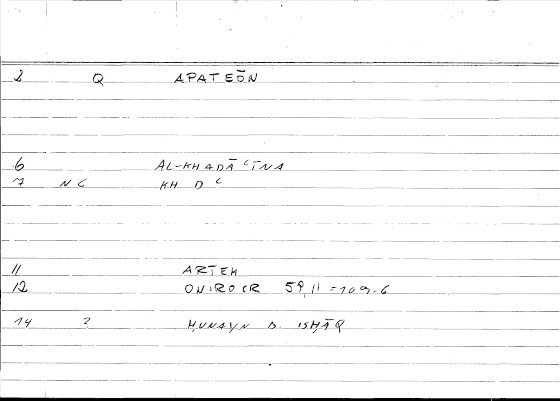 2 Q APATEŌN
6 AL-KHADĀʿĪNA
7 NC KH D ʿ
11 ARTEM
12 ONIROCR 59,11 = 109.6
14 2 ḤUNAYN B. ISḤĀQ